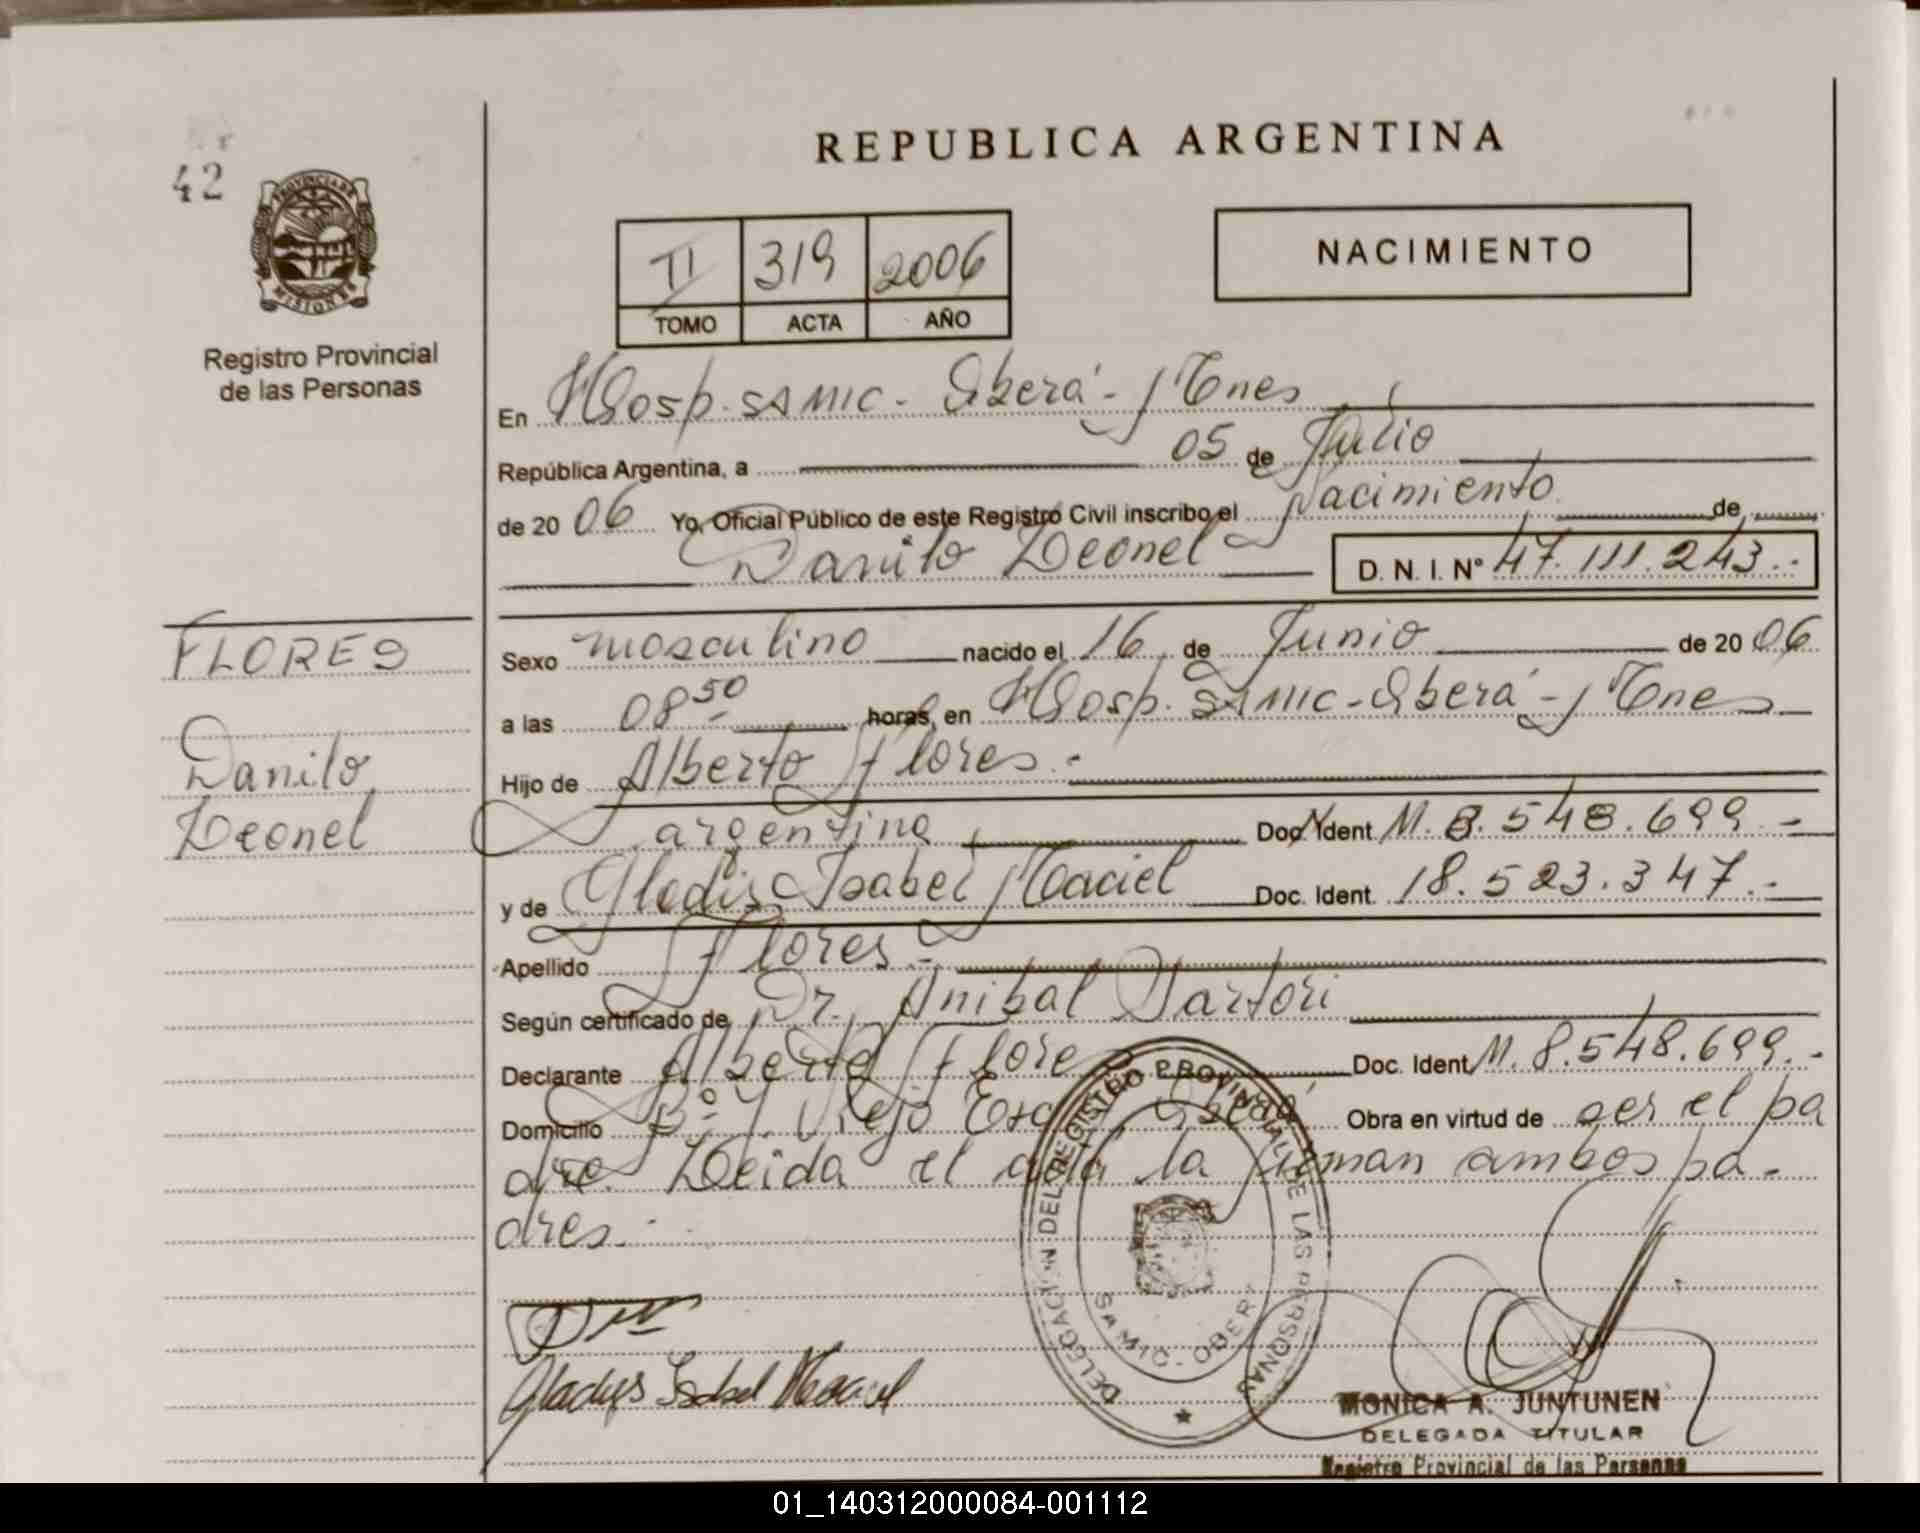 REPUBLICA ARGENTINA
42
PROVINCIA DE
MISIONES
Registro Provincial
de las Personas
II 319 2006
TOMO ACTA AÑO
NACIMIENTO
En Hosp. SAMIC - Oberá - Mnes
República Argentina, a 05 de Julio
de 20 06 Yo, Oficial Público de este Registro Civil inscribo el Nacimiento de
Danilo Leonel D. N. I. Nº 47.111.243.-
FLORES
Danilo
Leonel
Sexo masculino nacido el 16 de Junio de 20 06
a las 08 50 horas, en Hosp. SAMIC - Oberá - Mnes
Hijo de Alberto Flores.-
argentino Doc. Ident. M. 8.548.699.-
y de Gladis Isabel Maciel Doc. Ident. 18.523.347.-
Apellido Flores.-
Según certificado de Dr. Anibal Sartori
Declarante Alberto Flores Doc. Ident. M. 8.548.699.-
Domicilio Bº V. Viejo Obra en virtud de ser el pa
dre. Leida el acta la firman ambos pa-
dres.-
Gladys Isabel Maciel
DELEGACION DEL REGISTRO PROVINCIAL DE LAS PERSONAS
SAMIC - OBERA
MONICA A. JUNTUNEN
DELEGADA TITULAR
Registro Provincial de las Personas
01_140312000084-001112